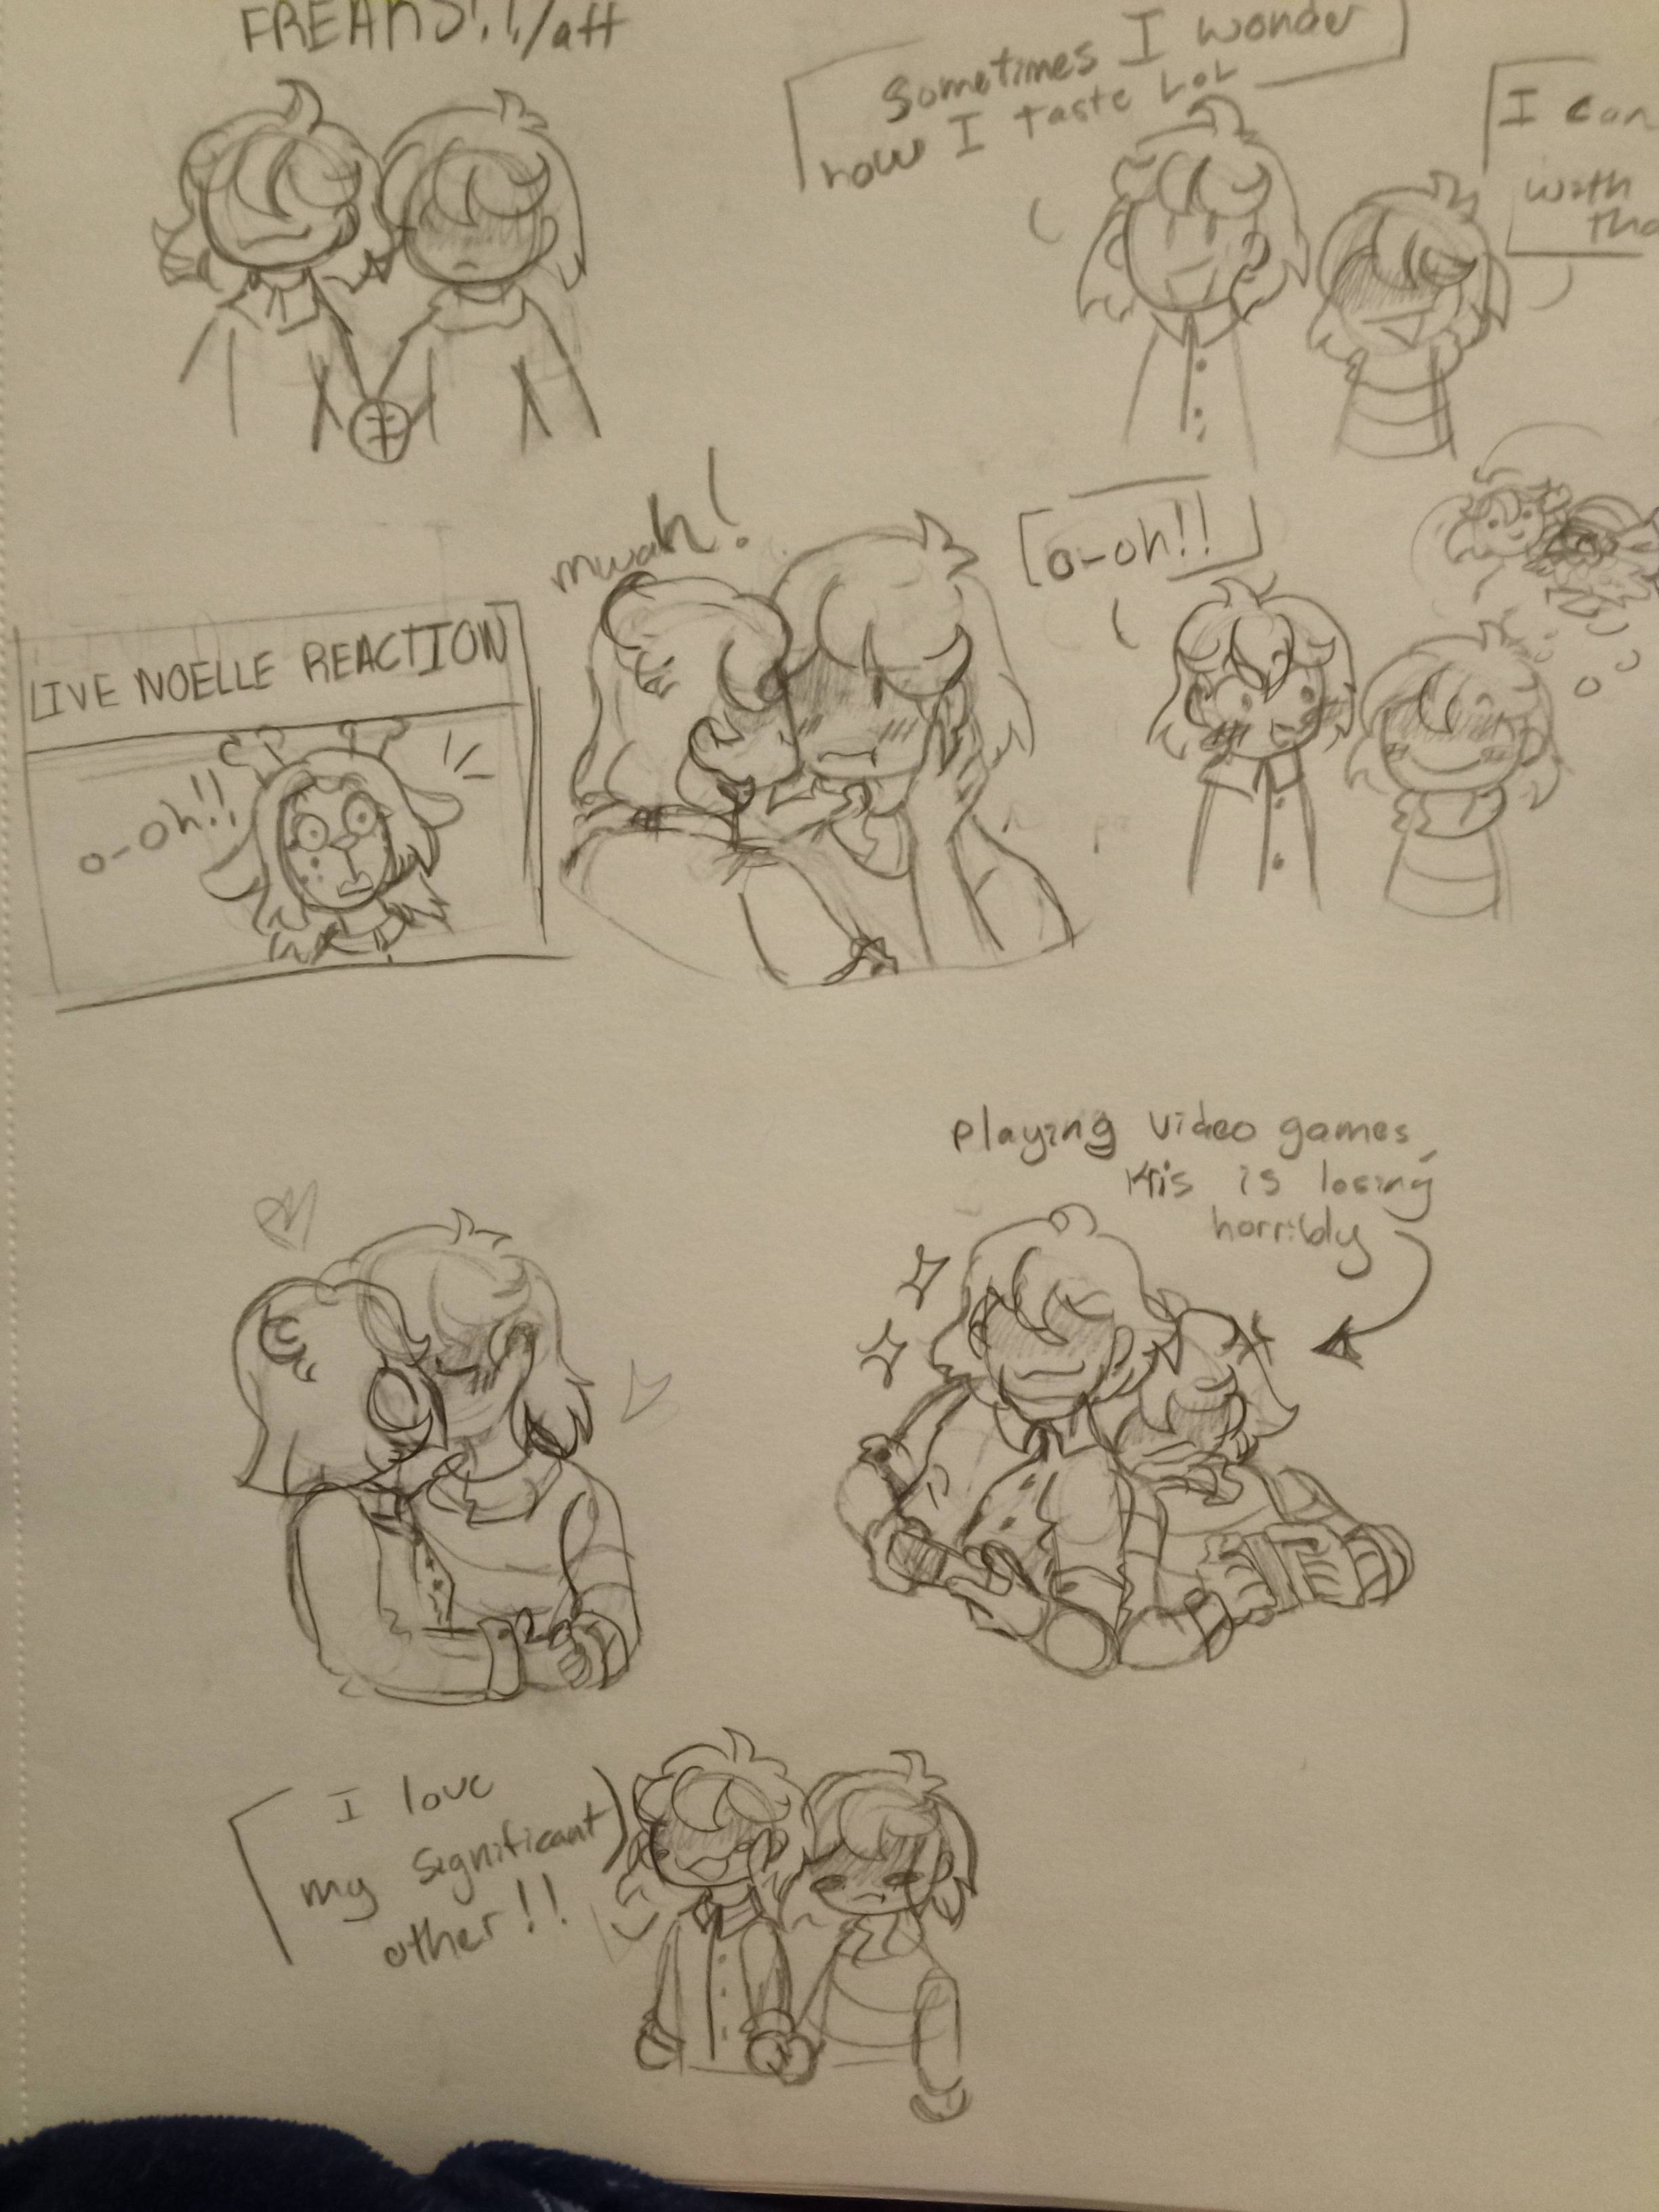 FREAKS!!/aff
Sometimes I wonder
how I taste LOL
I can
with
mwah!
o-oh!!
LIVE NOELLE REACTION
o-oh!!
playing video games,
Kris is losing
horribly
I love
my significant
other!!